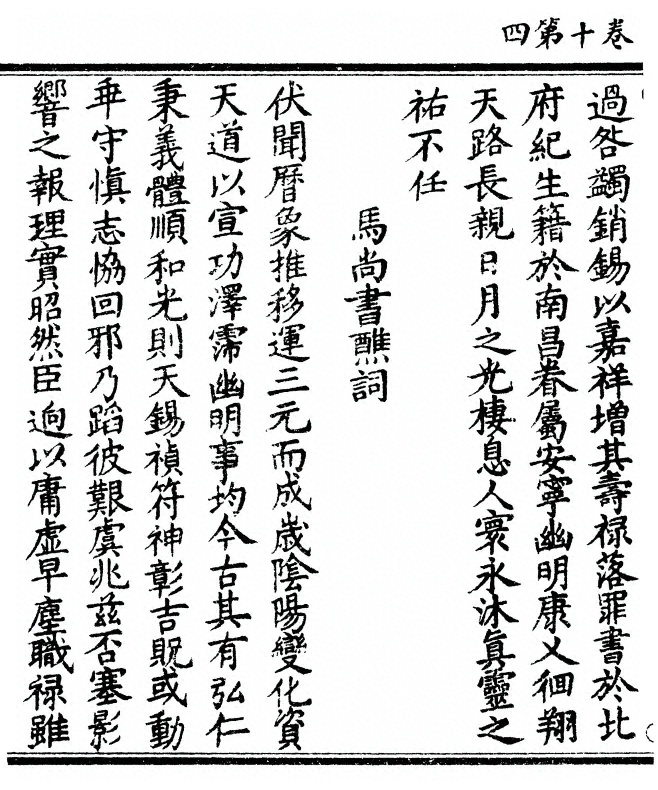 卷十第四
過咎蠲銷錫以嘉祥增其壽祿落罪書於北
府紀生籍於南昌眷屬安寧幽明康乂徊翔
天路長親日月之光棲息人寰永沐真靈之
祐不任
馬尚書醮詞
伏聞曆象推移運三元而成歲陰陽變化資
天道以宣功澤霈幽明事均今古其有弘仁
秉義體順和光則天錫禎符神彰吉貺或動
乖守慎志恊回邪乃蹈彼艱虞兆茲否塞影
響之報理實昭然臣逈以庸虛早塵職祿雖